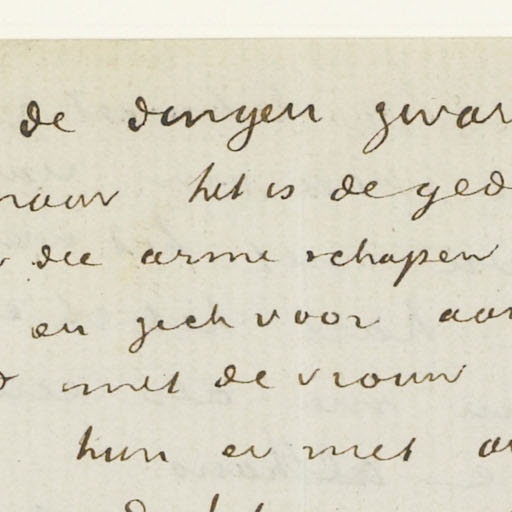 de dingen zwar
vrouw het is de ged
die arme schapen
en zich voor aan
met de vrouw
hun er met